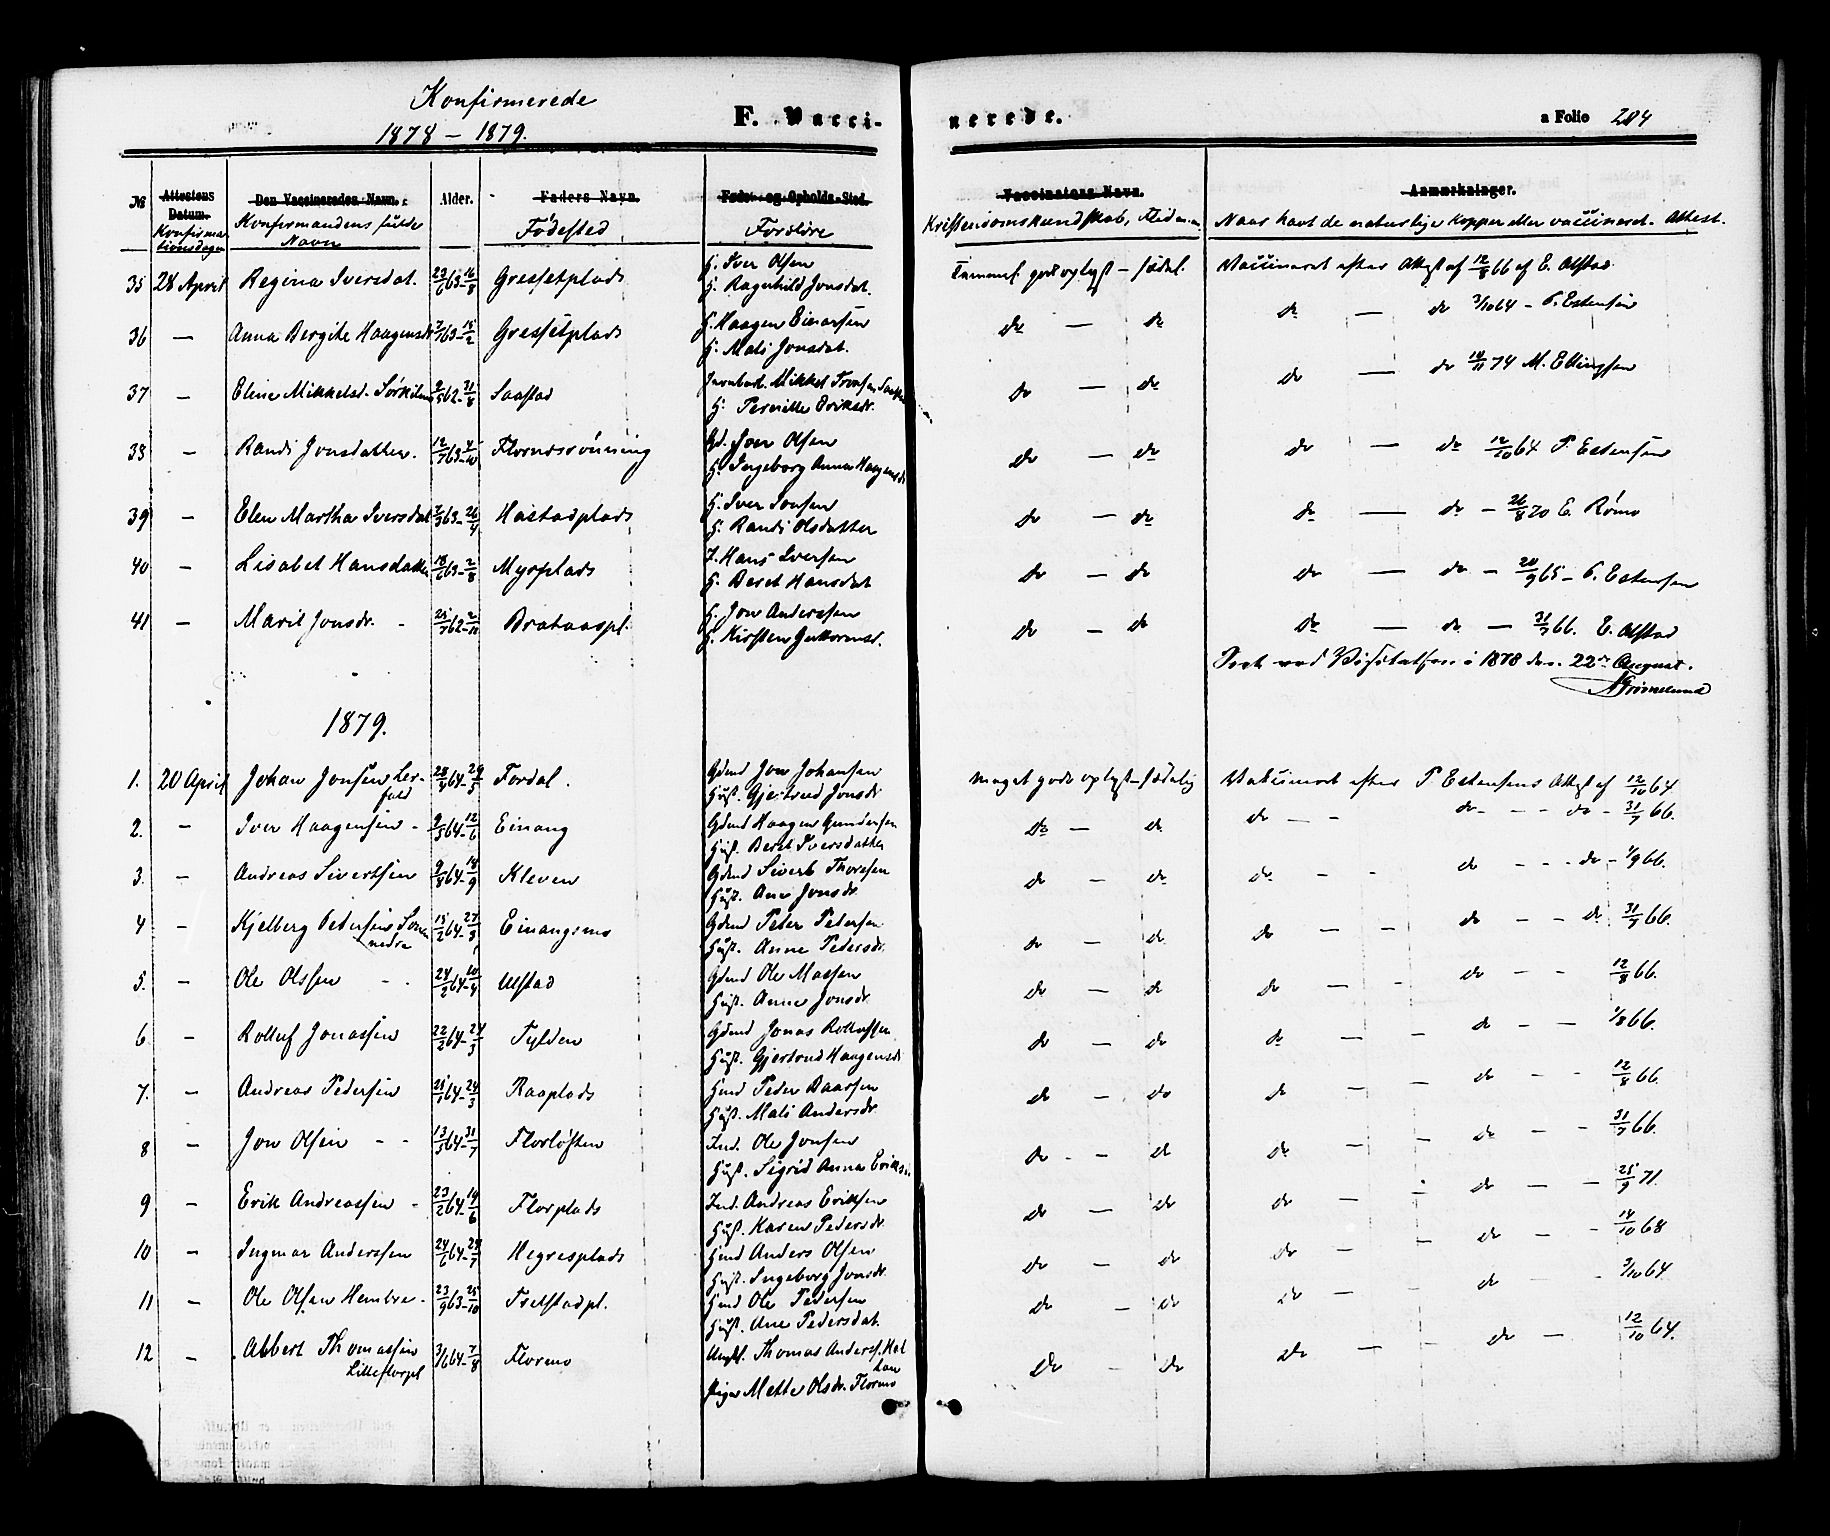 Konfirmerede
1878 - 1879.
F. Vacci-
nerede.
a Folio 204
№
Attestens Datum.
Konfirma-
tionsdagen
Den Vaccineredes Navn.
Konfirmandens fulde
Navn
Alder.
Faders Navn.
Fødested
Føde- og Opholds-Sted.
Forældre
Vaccinatens Navn.
Kristendomskundskab, Flid
Anmærkninger.
Naar havt de naturlige Kopper eller vaccineret. Attest.
35 28 April Regina Iversdat. 23/6 63 - 16/8 Gressetplads
G. Iver Olsen
H. Ragnhild Jonsdat.
godt oplyst - sædel. Vaccineret efter Attest af 12/8 66 af E. Olstad
36 — Anna Bergithe Haagensdr 7/1 63 - 15/2 Gressetplads
G. Haagen Einarsen
H. Mali Jonsdat.
do — do do — do 3/10 64 - P. Estensen
37 - Eline Mikkelsd. 9/5 62 - 31/8 Saastad
Mikkel
H. Pernille Eriksdr.
do — do do — do 10/11 74 M. Ellingsen
38 - Randi Jonsdatter. 12/7 63 - 4/10 Flornesrönning
Gd. Jon Olsen
H. Ingeborg Anna Haagensdr
do — do do — do 12/10 64 P. Estensen
39 - Elen Martha Iversdat 7/3 63 - 26/4 Hastadplads
H. Iver Jonsen
H. Randi Olsdatter
do — do do — do - 26/8 70 E. Rømo
40 - Lisabet Hansdatter 18/6 63 - 2/8 Myrplads
I. Hans Iversen
H. Beret Hansdat
do — do do — do - 20/9 65 - P. Estensen
41 - Marit Jonsdr. 25/7 62 - 2/11 Brataaspl.
H. Jon Anderssen
H. Kirsten Guttormsd.
do - do do — do — 31/7 66. E. Olstad
Seet ved Visitatsen i 1878 den 22de August.
AGrimelund
1879.
1. 20 April Johan Jonsen Ler-
fald 28/4 64 - 29/5 Fordal.
Gdmd Jon Johansen
Hust. Gjertrud Jonsdr
Meget godt oplyst - sædelig Vakcineret efter P. Estensens Attest af 12/10 64
2. - Iver Haagensen - 9/5 64 - 12/6 Einang
Gdmd Haagen Gundersen
Hust. Beret Iversdatter
do — do do - - do - - do - 31/7 66.
3. - Andreas Sivertsen 9/8 64 - 18/9 Kleven
Gdmd Sivert Thoresen
Hust. Ane Jonsdr
do — do do - - do - - do - 1/9 66.
4 - Kjelberg Petersen
nedre 15/2 64 - 27/3 Einangsmo
Gdmd Peter Petersen
Hust. Anne Pedersdr.
do — do do - - do - - do 31/7 66.
5. - Ole Olssen - . 24/2 64 - 10/4 Ulstad
Gdmd Ole Massen
Hust. Anne Jonsdr.
do — do do — - do - - 12/8 66.
6 - Rolluf Jonassen 22/2 64 - 24/3 Tylden
Gdmd Jonas Rollufsen
Hust. Gjertrud Haagensdr
do — do do — - do - — 1/8 66.
7. - Andreas Pedersen 25/1 64 - 24/3 Raaplads
Hmd Peder Baarsen
Hust. Mali Andersdr.
do — do do — - do - - 12/8 66.
8 - Jon Olsen - - 13/5 64 - 31/7 Florløften
Ind. Ole Jonsen
Hust. Sigrid Anna Eriksdr.
do - - do do — - do - - 31/7 66.
9 - Erik Andreassen - 23/2 64 - 19/6 Florplads
Ind. Andreas Eriksen
Hust. Karen Pedersdr.
do — do do — - do - - 25/9 71.
10 - Ingmar Anderssen 24/6 64 - 24/7 Hegresplads
Hmd Anders Olsen
Hust. Ingeborg Jonsdr.
do — do do — - do - - 14/10 68
11 - Ole Olsen Hembre - 23/9 63 - 25/10 Trelstadpl.
Hmd Ole Pedersen
Hust. Ane Pedersdat.
do — do do — - do - 3/10 64.
12 - Albert Thomassen
Lilleflorpl 3/6 64 - 7/8 Flormo
Ungk. Thomas Anderss.
Pige Mette Olsdr. Flormo
do — do do — - do — 12/10 64.